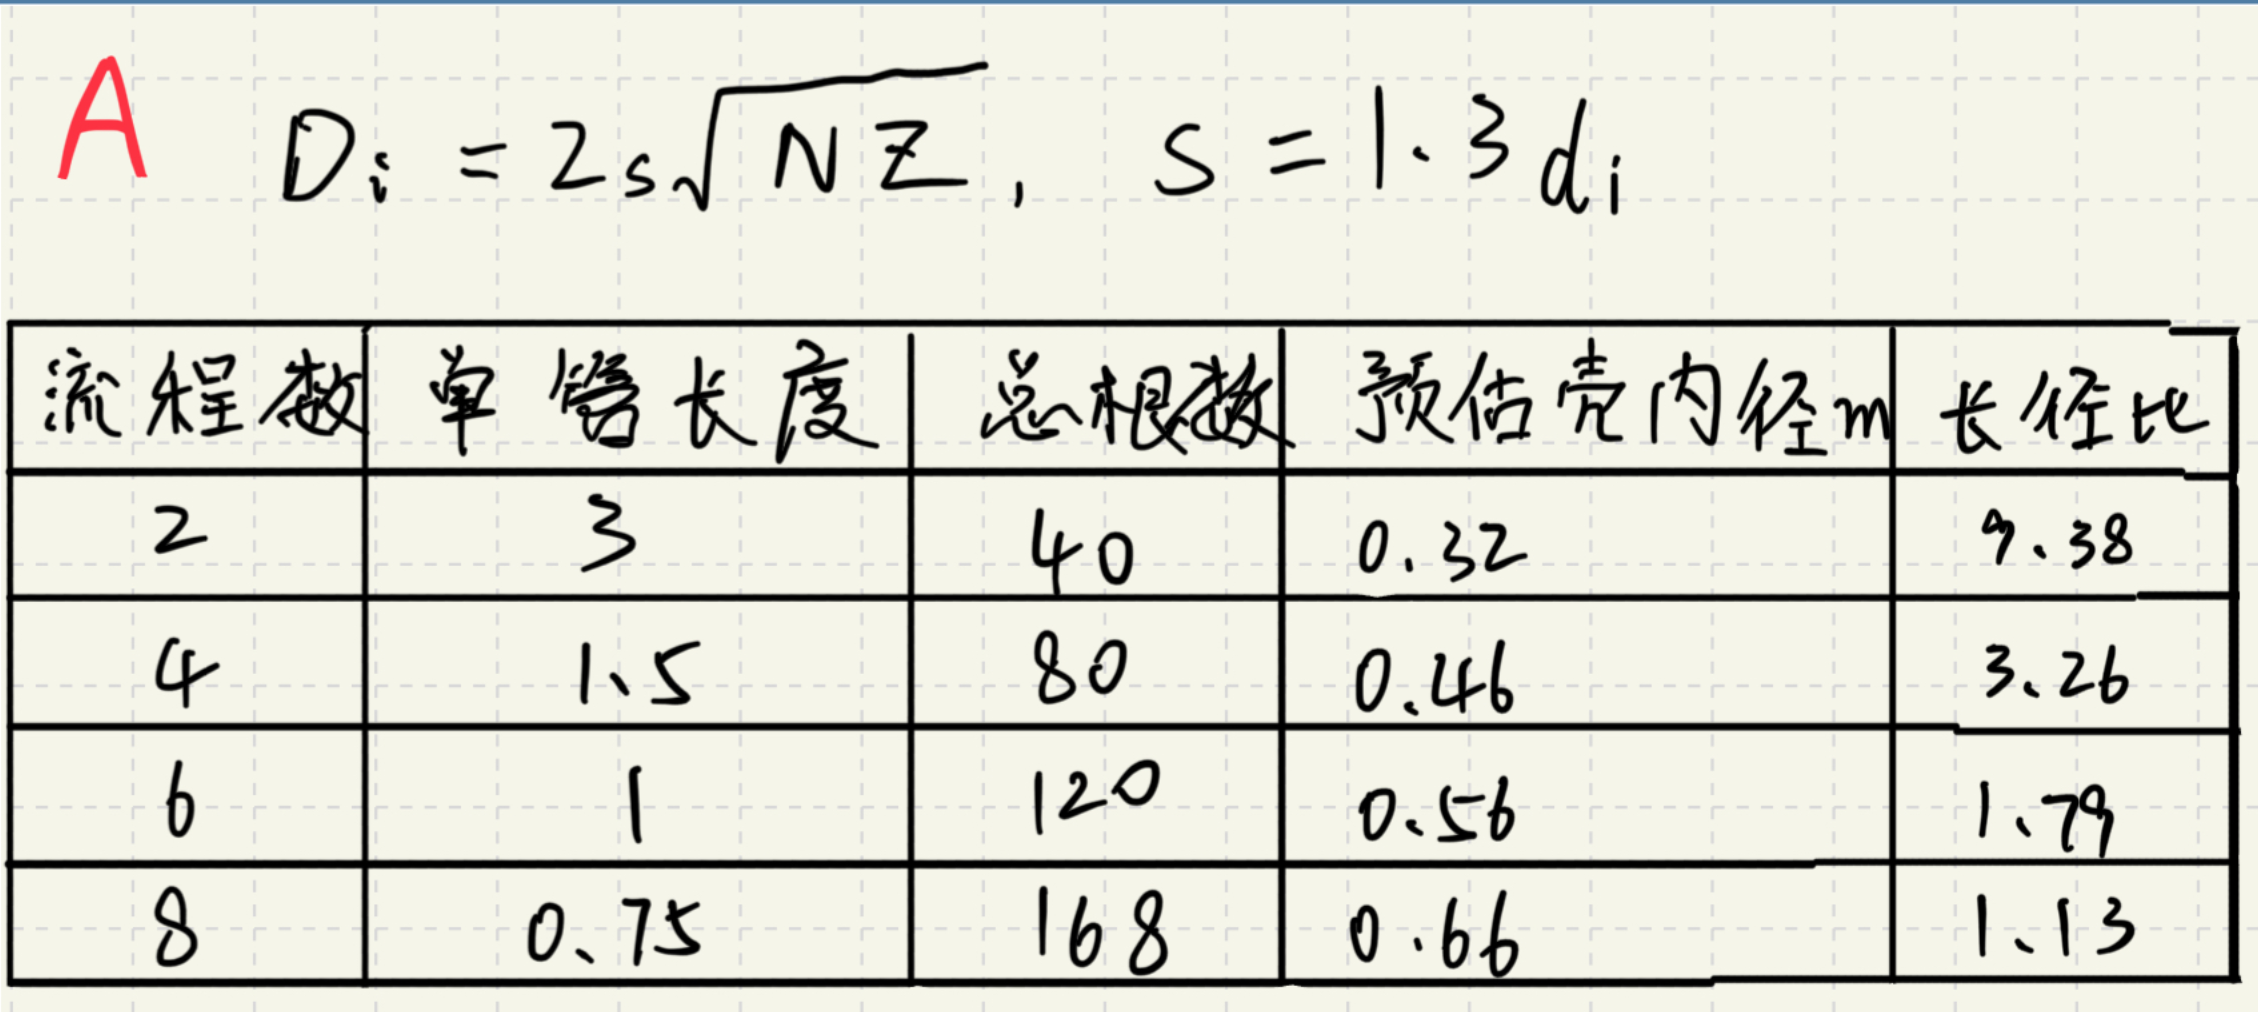 A Di = 2s√NZ, S = 1.3di
流程数 单管长度 总根数 预估壳内径m 长径比
2 3 40 0.32 9.38
4 1.5 80 0.46 3.26
6 1 120 0.56 1.79
8 0.75 168 0.66 1.13